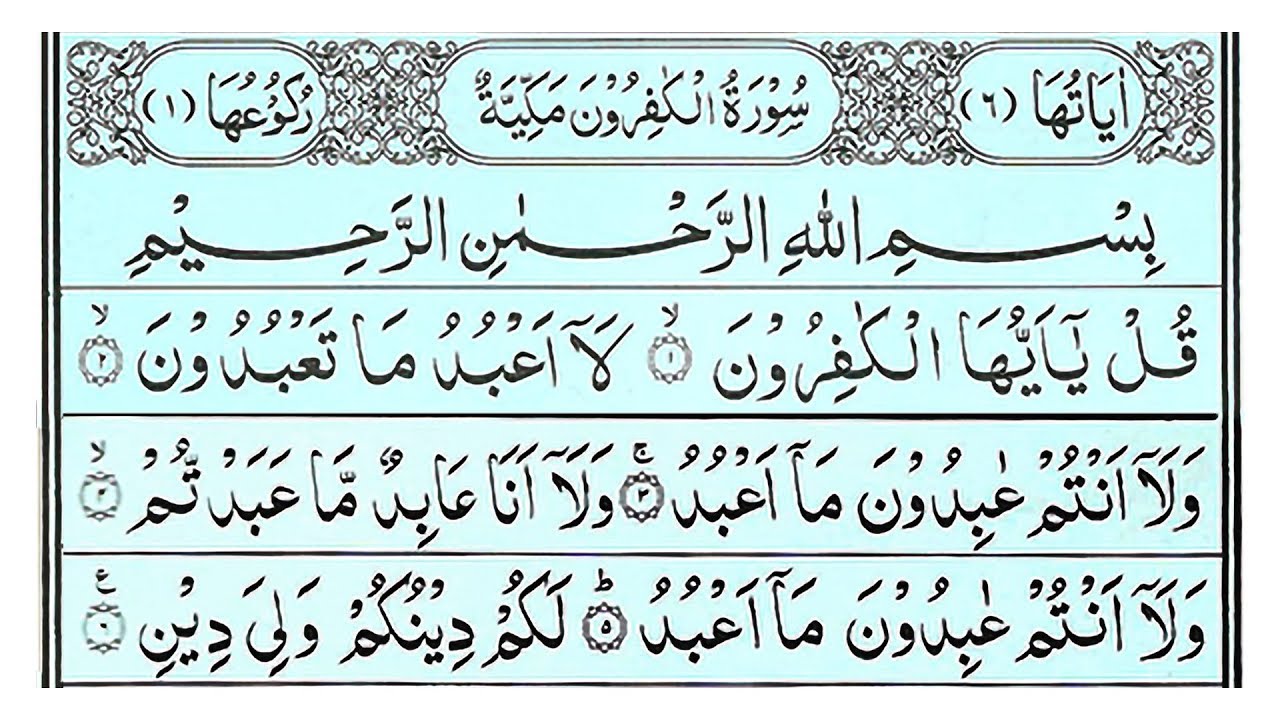 اٰيَاتُهَا (٦) سُوْرَةُ الْكٰفِرُوْنَ مَكِّيَّةٌ رُكُوْعُهَا (١)
بِسْمِ اللّٰهِ الرَّحْمٰنِ الرَّحِيْمِ
قُلْ يٰٓاَيُّهَا الْكٰفِرُوْنَ ۙ‏ ۝١ لَاۤ اَعْبُدُ مَا تَعْبُدُوْنَ ۙ‏ ۝٢
وَلَاۤ اَنْتُمْ عٰبِدُوْنَ مَاۤ اَعْبُدُ ۚ‏ ۝٣ وَلَاۤ اَنَا عَابِدٌ مَّا عَبَدْتُّمْ ۙ‏ ۝٤
وَلَاۤ اَنْتُمْ عٰبِدُوْنَ مَاۤ اَعْبُدُ ؕ‏ ۝٥ لَكُمْ دِيْنُكُمْ وَلِىَ دِيْنِ ۝٦ ع